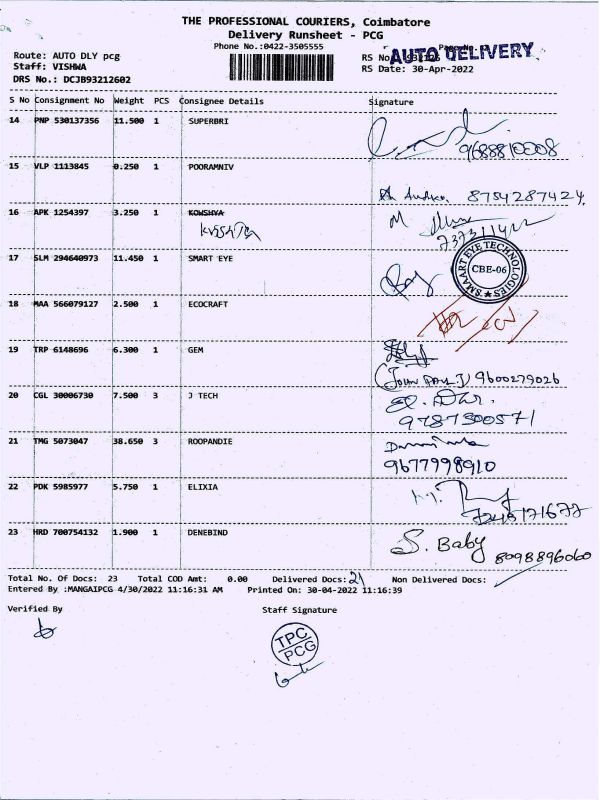 THE PROFESSIONAL COURIERS, Coimbatore
Delivery Runsheet - PCG
Phone No.:0422-3505555
AUTO DELIVERY
Route: AUTO DLY pcg
RS No
Staff: VISHWA
RS Date: 30-Apr-2022
DRS No.: DCJB93212602
S No Consignment No Weight PCS Consignee Details Signature
14 PNP 530137356 11.500 1 SUPERBRI
9688810008
15 VLP 1113845 0.250 1 POORAMNIV
8754287424
16 APK 1254397 3.250 1 KOWSHYA
17 SLM 294640973 11.450 1 SMART EYE
SMAART EYE TECHNOLOGIES
CBE-06
18 MAA 566079127 2.500 1 ECOCRAFT
19 TRP 6148696 6.300 1 GEM
9600279026
20 CGL 30006730 7.500 3 J TECH
9787300571
21 TMG 5073047 38.650 3 ROOPANDIE
9677998910
22 PDK 5985977 5.750 1 ELIXIA
23 HRD 700754132 1.900 1 DENEBIND
S. Baby 8098896060
Total No. Of Docs: 23 Total COD Amt: 0.00 Delivered Docs: 21 Non Delivered Docs:
Entered By :MANGAIPCG 4/30/2022 11:16:31 AM Printed On: 30-04-2022 11:16:39
Verified By Staff Signature
TPC
PCG